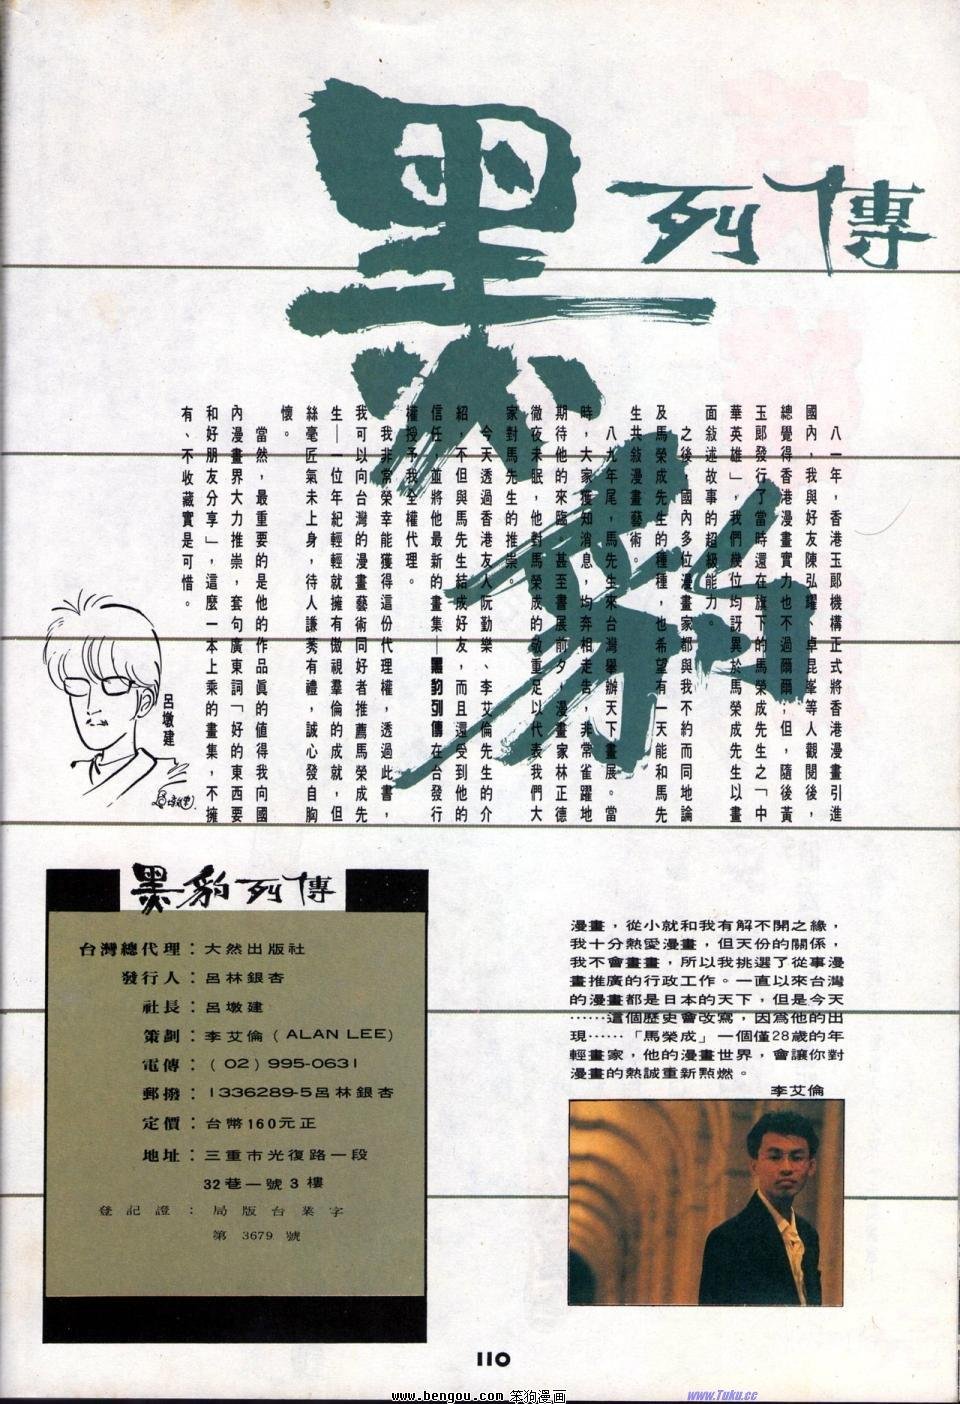 黑豹
列傳
　八一年，香港玉郎機構正式將香港漫畫引進
國內，我與好友陳弘耀、卓昆峯等人觀閱後，
總覺得香港漫畫實力也不過爾爾；但，隨後黃
玉郎發行了當時還在旗下的馬榮成先生之「中
華英雄」，我們幾位均訝異於馬榮成先生以畫
面敍述故事的超級能力。
　之後，國內多位漫畫家都與我不約而同地論
及馬榮成先生的種種，也希望有一天能和馬先
生共敍漫畫藝術。
　八九年尾，馬先生來台灣舉辦天下畫展。當
時，大家獲知消息，均奔相走告，非常雀躍地
期待他的來臨。甚至書展前夕，漫畫家林正德
徹夜未眠，他對馬榮成的敬重足以代表我們大
家對馬先生的推崇。
　今天透過香港友人阮勤樂、李艾倫先生的介
紹，不但與馬先生結成好友，而且還受到他的
信任，並將他最新的畫集—黑豹列傳在台發行
權授予我全權代理。
　我非常榮幸能獲得這份代理權，透過此書，
我可以向台灣的漫畫藝術同好者推薦馬榮成先
生—一位年紀輕輕就擁有傲視羣倫的成就，但
絲毫匠氣未上身，待人謙恭有禮，誠心發自胸
懷。
　當然，最重要的是他的作品眞的值得我向國
內漫畫界大力推崇，套句廣東詞「好的東西要
和好朋友分享」，這麼一本上乘的畫集，不擁
有、不收藏實是可惜。
呂墩建
黑豹列傳
台灣總代理：大然出版社
發行人：呂林銀杏
社長：呂墩建
策劃：李艾倫(ALAN LEE)
電傳：(02)995-0631
郵撥：1336289-5呂林銀杏
定價：台幣160元正
地址：三重市光復路一段
32巷一號3樓
登記證：局版台業字
第3679號
漫畫，從小就和我有解不開之緣，
我十分熱愛漫畫，但天份的關係，
我不會畫畫，所以我挑選了從事漫
畫推廣的行政工作。一直以來台灣
的漫畫都是日本的天下，但是今天
……這個歷史會改寫，因為他的出
現……「馬榮成」一個僅28歲的年
輕畫家，他的漫畫世界，會讓你對
漫畫的熱誠重新㸃燃。
李艾倫
110
www.bengou.com 笨狗漫画
www.Tuku.cc